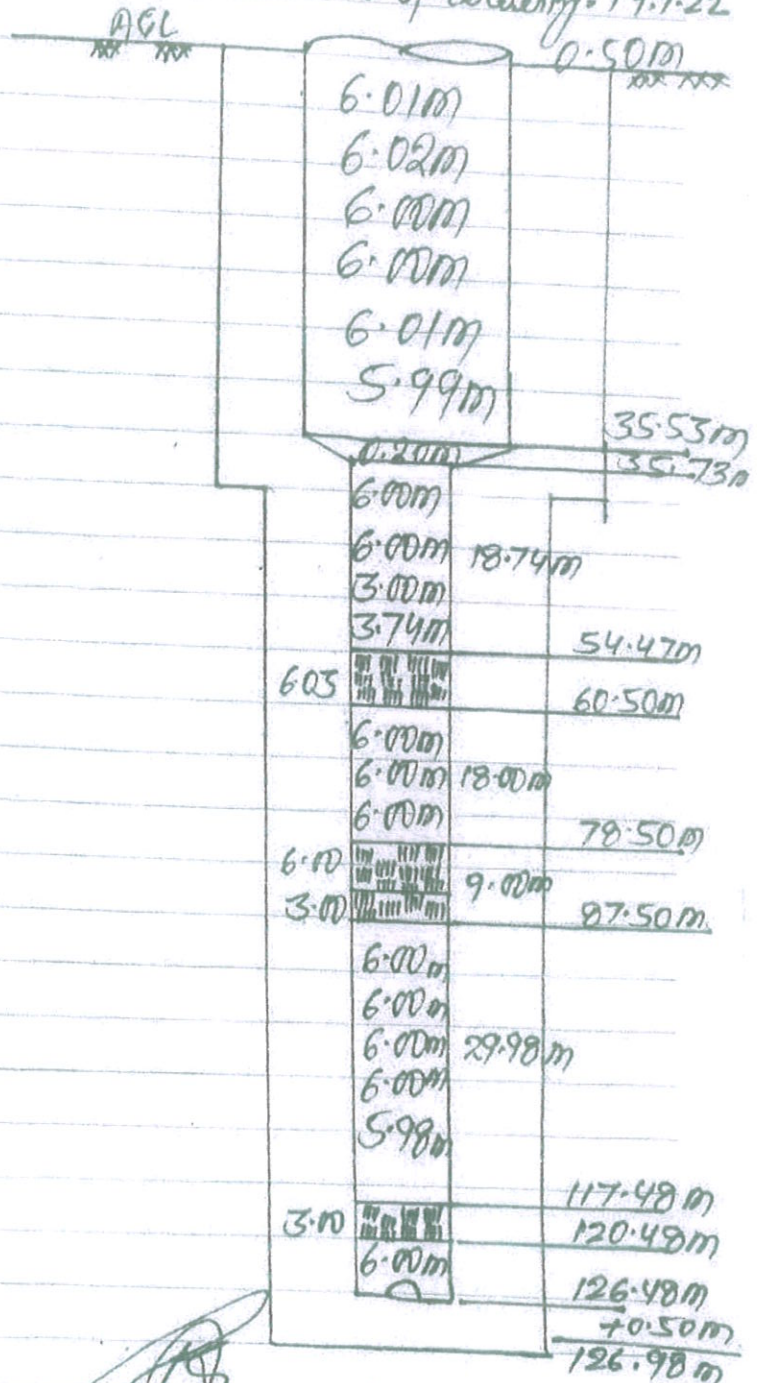 of lowering: 19.1.22
AGL
0.50m
6.01m
6.02m
6.00m
6.00m
6.01m
5.99m
35.53m
0.20m
35.73m
6.00m
6.00m 18.74m
3.00m
3.74m
54.47m
6.03
60.50m
6.00m
6.00m 18.00m
6.00m
78.50m
6.00
9.00m
3.00
87.50m
6.00m
6.00m
6.00m 29.98m
6.00m
5.98m
117.48m
3.00
120.48m
6.00m
126.48m
+0.50m
126.98m